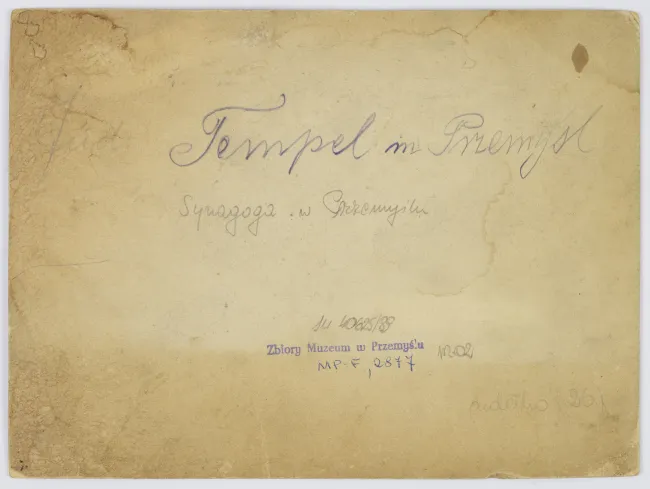 Tempel in Przemysl
Synagoga w Przemyślu
Zbiory Muzeum w Przemyślu
MP-F 2877